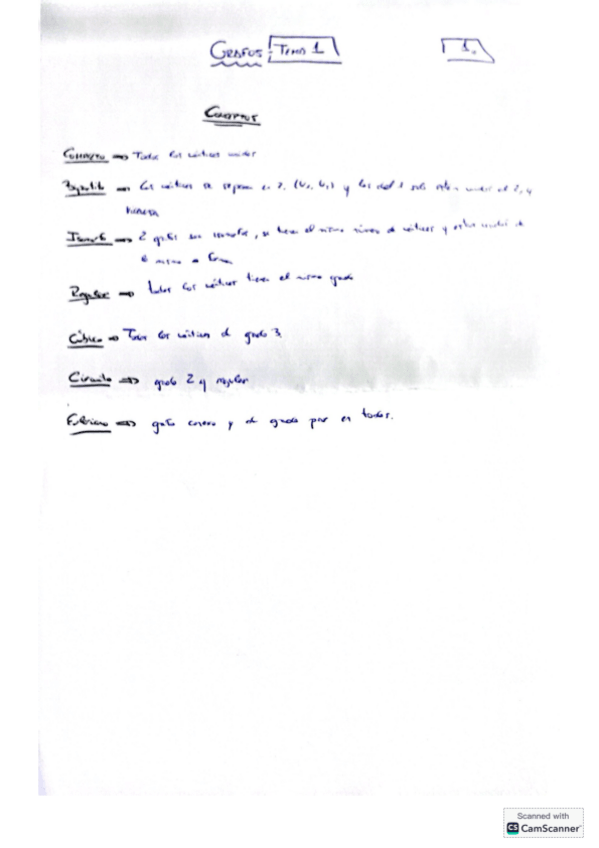 GRAFOS: TEMA 1
1.
CONCEPTOS
Todos los vértices unidos
Bipartito Los vértices se separan en 2, y los del 1 solo están unidos al 2, y
2 grafos son si tienen el mismo número de vértices y están unidos de
Regular todos los vértices tienen el mismo grado
Cúbico Todos los vértices de grado 3.
Circuito grado 2 y regular
Euleriano grafo conexo y de grado par en todos.
Scanned with
CS CamScanner